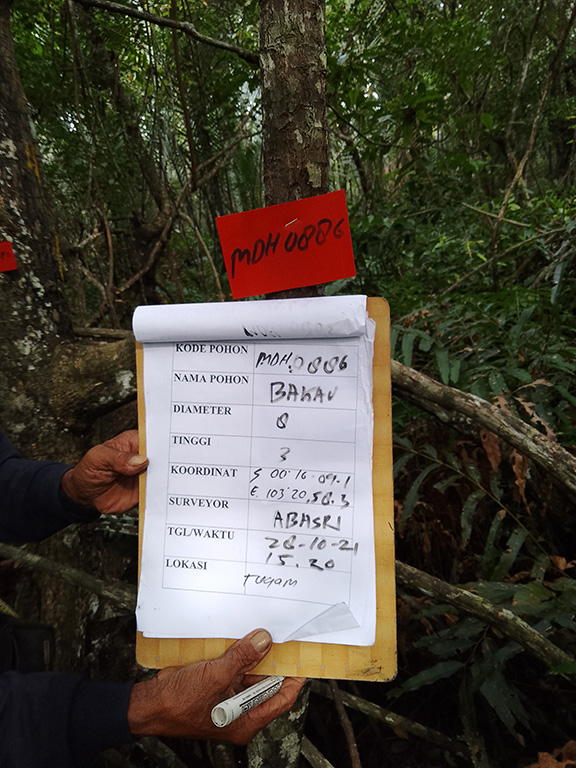 MDH 0886
KODE POHON MDH.0886
NAMA POHON BAKAU
DIAMETER 8
TINGGI 3
KOORDINAT S 00°16.09.1
E 103°20.58.3
SURVEYOR ABASRI
TGL/WAKTU 28-10-21
15.20
LOKASI TUGAM